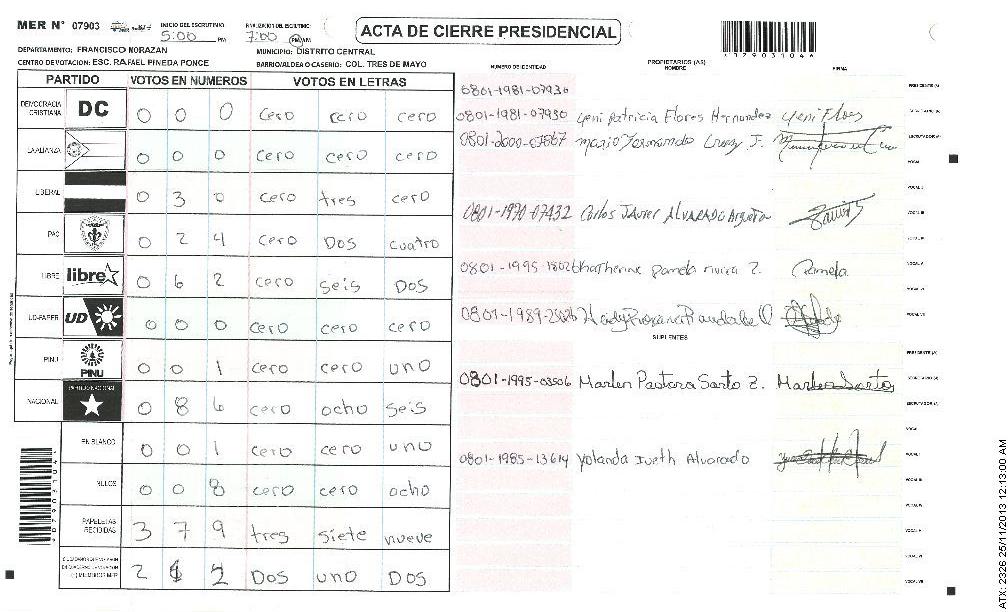 MER N° 07903 INICIO DEL ESCRUTINIO 5:00 PM FINALIZACION DEL ESCRUTINIO: 7:00 PM AM
ACTA DE CIERRE PRESIDENCIAL
DEPARTAMENTO: FRANCISCO MORAZAN MUNICIPIO: DISTRITO CENTRAL
CENTRO DE VOTACION: ESC. RAFAEL PINEDA PONCE BARRIO/ALDEA O CASERIO: COL. TRES DE MAYO
NUMERO DE IDENTIDAD PROPIETARIOS (AS) NOMBRE FIRMA
PARTIDO VOTOS EN NUMEROS VOTOS EN LETRAS
DEMOCRACIA CRISTIANA DC 0 0 0 cero cero cero
LA ALIANZA 0 0 0 cero cero cero
LIBERAL 0 3 0 cero tres cero
PAC 0 2 4 cero Dos cuatro
LIBRE libre 0 6 2 cero seis Dos
UD-FAPER UD 0 0 0 cero cero cero
PINU PINU 0 0 1 cero cero uno
NACIONAL PARTIDO NACIONAL 0 8 6 cero ocho seis
EN BLANCO 0 0 1 cero cero uno
NULOS 0 0 8 cero cero ocho
PAPELETAS RECIBIDAS 3 7 9 tres siete nueve
2 1 2 Dos uno Dos
0801-1981-07930
0801-1981-07930 Yeni Patricia Flores Hernandez Yeni Flores
Mario Fernando
0801-1970-07432 Carlos JAVIER ALVARADO Argueta
0801-1995- Katherine pamela rivera Z. Pamela
0801-1989-
SUPLENTES
0801-1995-03506 Marlen Pastora Sarto Z. Marlen Sarto
0801-1985-13614 Yolanda Iveth Alvarado
ATX: 2326 25/11/2013 12:13:00 AM